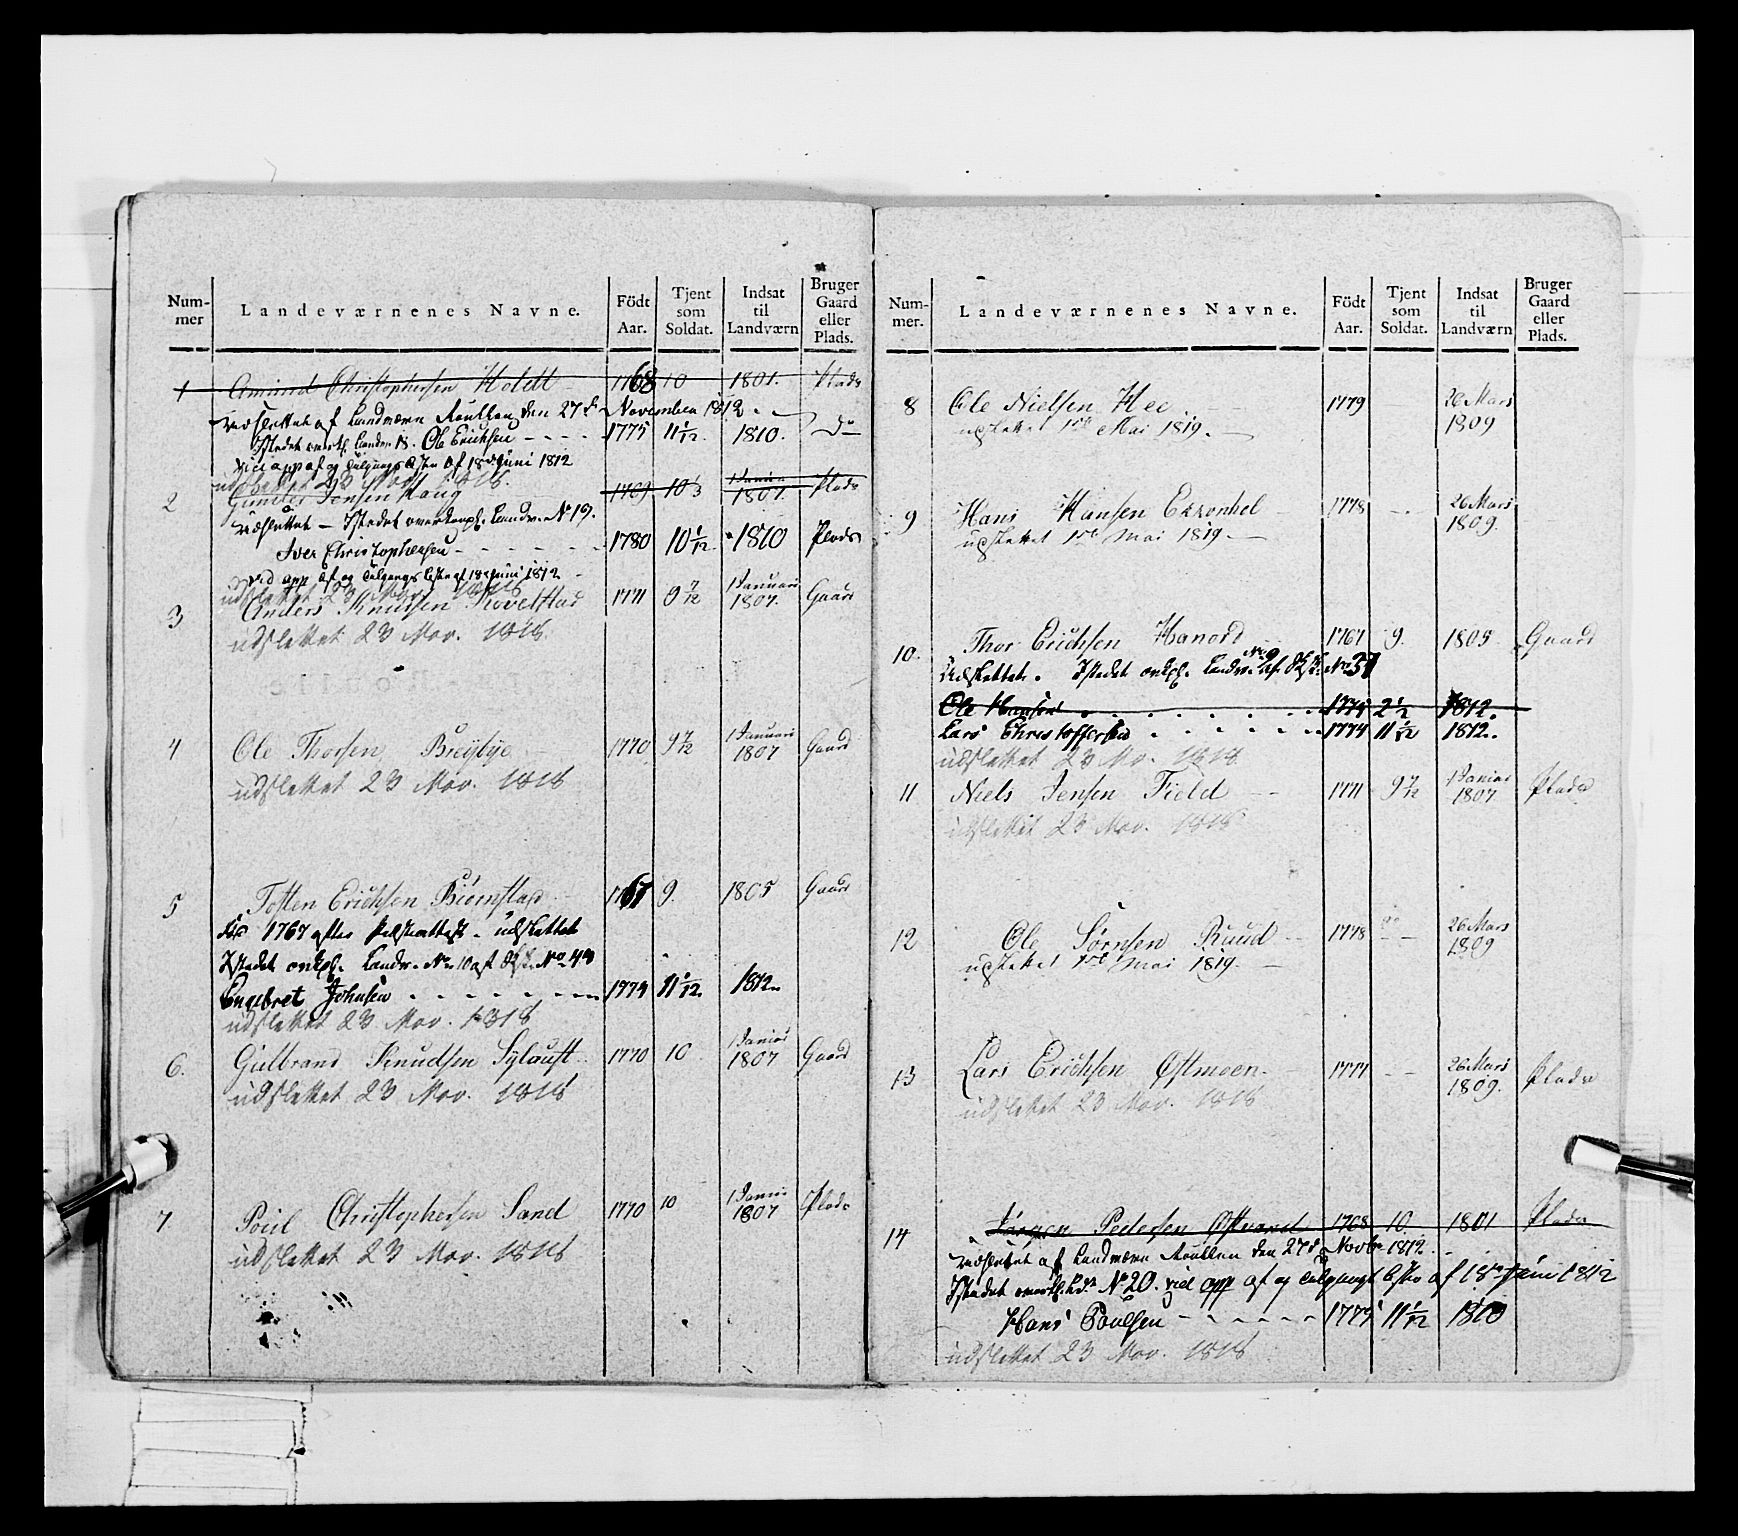 Num-mer	Landeværnenes Navne.	Födt Aar.	Tjent som Soldat.	Indsat til Landværn	Bruger Gaard eller Plads.
1 Amund Christophersen Holdt 1768 10 1801. Plads
udslettet af Landværn Roullen den 27de November 1812.
Istedet overk. Landv. 18. Ole Erichsen 1775 11 1/12. 1810. Do
vid app af og Tilgangs Listen af 18de Juni 1812
udslettet 23 Mov. 1818.
2 Gunder Jensen Haug 1769 10 1/3 1 Januar 1807. Plads
udslettet - Istedet overkompl. Landv. No 19.
Iver Christophersen 1780 10 1/12. 1810 Plads
vid app af og Tilgangs Liste af 18de Juni 1812
udslettet 23 Mov. 1818
3 Anders Knudsen 1771 9 7/12 1 Januari 1807. Gaard
udslettet 23 Mov. 1818.
4 Ole Thorsen Breÿbÿe 1770 9 7/12 1 Januari 1807 Gaard
udslettet 23 Mov. 1818
5 Tosten Erichsen Biørnstad 1767 9. 1805 Gaard
1767 efter udslettet
Istedet ovkpl. Landv. No 10 af No 44
Engebret Johnsen 1774 11 1/12. 1812.
udslettet 23 Mov. 1818
6. Gulbrand Knudsen 1770 10 1 Januar 1807 Gaard
udslettet 23 Mov. 1818
7. Poul Christophersen Sand 1770 10 1 Januar 1807 Plads
udslettet 23 Mov. 1818
Num-mer.	Landeværnenes Navne.	Födt Aar.	Tjent som Soldat.	Indsat til Landværn	Bruger Gaard eller Plads.
8 Ole Nielsen Hee 1779 26 Mars 1809
udslettet 1ste Mai 1819.
9 Hans Hansen 1778 26 Mars 1809.
udslettet 1ste Mai 1819.
10. Thor Erichsen Hanord 1767 9. 1805 Gaard
Udslettet. Istedet ovkpl. Landv. No 9 af No 37
Ole Hansen 1775 2 1/2 1812.
Lars Christoffersen 1774 11 1/12 1812.
udslettet 23 Mo. 1818
11 Niels Jensen Field 1771 9 7/12 1 Januar 1807 Plads
udslettet 23 Mov. 1818
12 Ole Sørnsen Ruud 1778 26 Mars 1809
udslettet 1ste Mai 1819.
13 Lars Erichsen Østmoen 1777 26 Mars 1809. Plads
udslettet 23 Mov. 1818
14 Jørgen Pedersen 1768 10 1801 Plads
udslettet af Landværn Roullen den 27de Novbr 1812.
Istedet overk. Ldv. No 20. vid app af og Tilgangs Liste af 18de Juni 1812
Hans Poulsen 1775 11 1/12 1810
udslettet 23 Mov. 1818